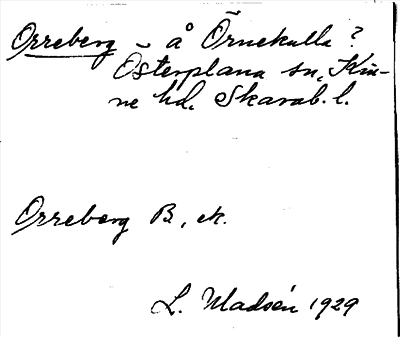 Orreberg – å Örnekulla?
Österplana sn, Kin-
ne hd, Skarab. l.
Orreberg B, ek.
L. Madsén 1929